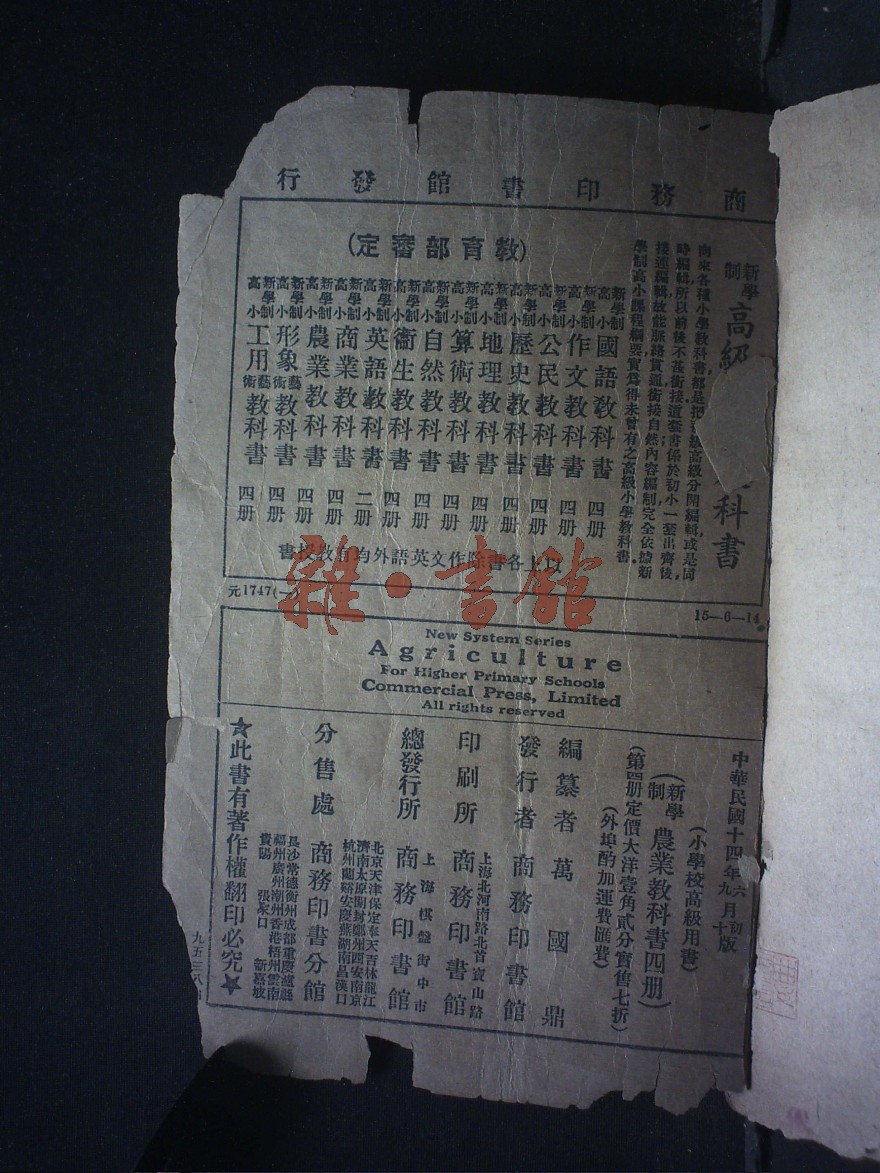 商務印書館發行
新學制高級
科書
向來各種小學教科書都是把
高級分開編輯或是同
時編輯所以前後不甚銜接這套書係於初小一套出齊後
接連編輯故能脈絡貫通銜接自然內容編制完全依據新
學制高小課程綱要實為得未曾有之高級小學教科書
(教育部審定)
新學制高小國語教科書 四册
新學制高小作文教科書 四册
新學制高小公民教科書 四册
新學制高小歷史教科書 四册
新學制高小地理教科書 四册
新學制高小算術教科書 四册
新學制高小自然教科書 四册
新學制高小衞生教科書 四册
新學制高小英語教科書 二册
新學制高小商業教科書 四册
新學制高小農業教科書 四册
新學制高小形象藝術教科書 四册
新學制高小工用藝術教科書 四册
以上各書除作文英語外均有教授書
元1747(一)
15—6—14
雜·書館
New System Series
Agriculture
For Higher Primary Schools
Commercial Press, Limited
All rights reserved
中華民國十四年六月初版
九 十
(小學校高級用書)
(新學制)農業教科書四册)
(第四册定價大洋壹角貳分實售七折)
(外埠酌加運費匯費)
編纂者 萬國鼎
發行者 商務印書館
印刷所 上海北河南路北首寶山路 商務印書館
總發行所 上海棋盤街中市 商務印書館
分售處 商務印書分館
北京天津保定奉天吉林龍江
濟南太原開封鄭州西安南京
杭州蘭谿安慶蕪湖南昌漢口
長沙常德衡州成都重慶瀘縣
福州廣州潮州香港梧州雲南
貴陽 張家口 新嘉坡
★此書有著作權翻印必究★
九五三八